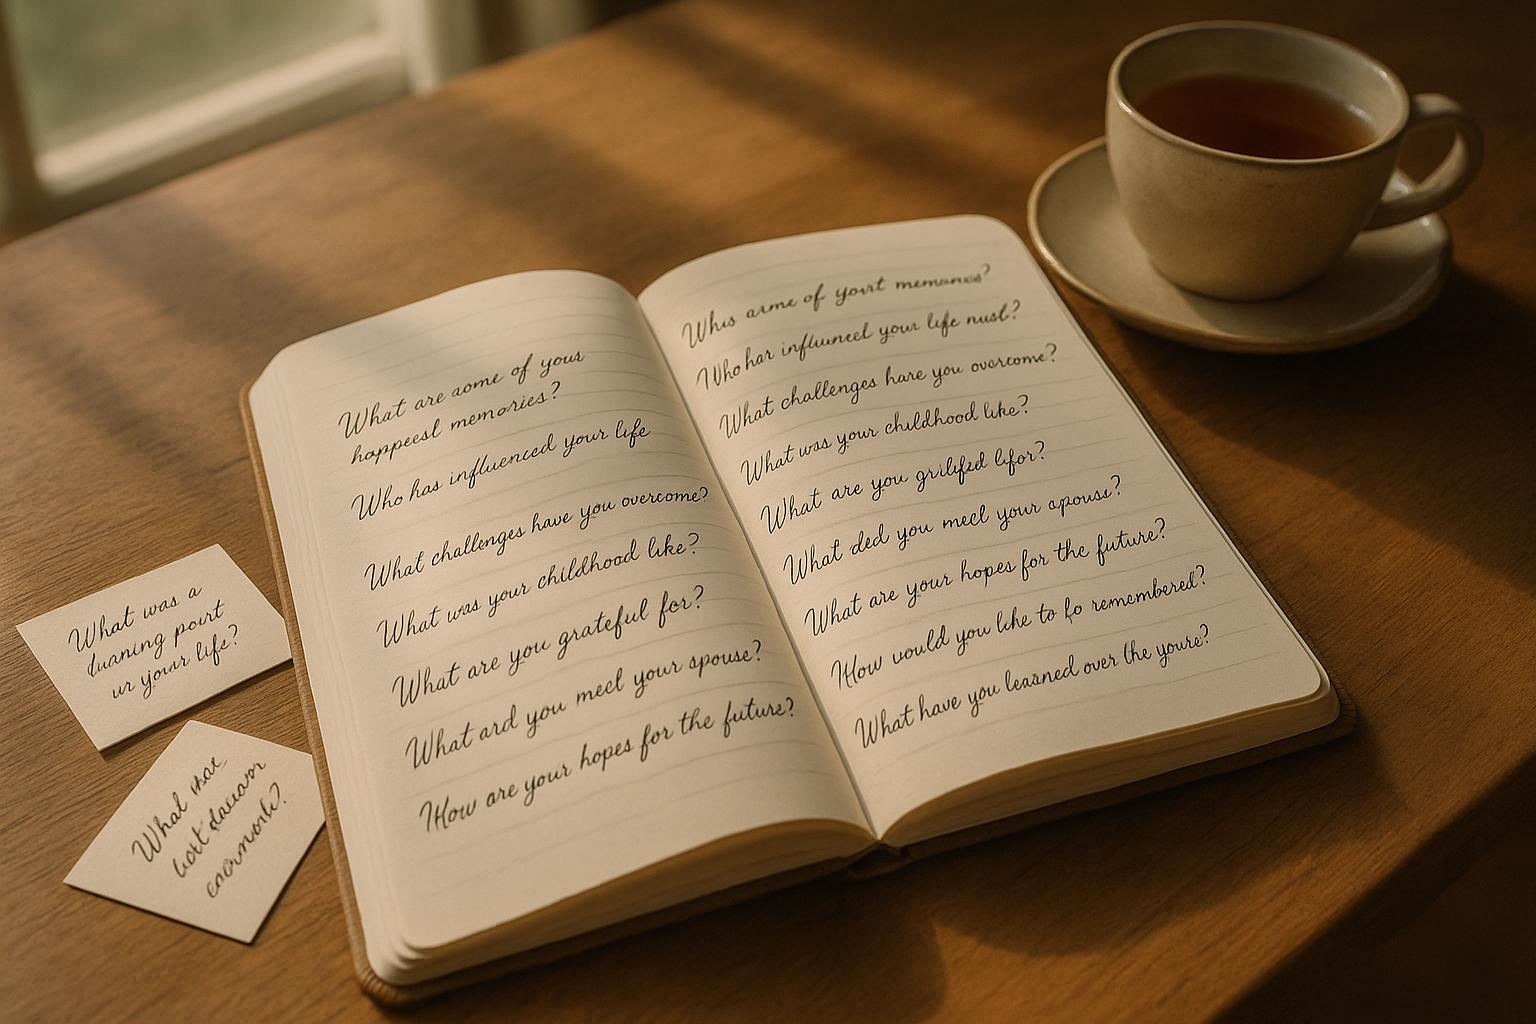 What are aome of your
happeesl memories?
Who has influenced your life
What challenges have you overcome?
What was your childhood like?
What are you grateful for?
What ard you meel your spouse?
How are your hopes for the future?
Whis arme of yourt memories?
Who har influneel your life nusl?
What challenges hare you overcome?
What was your childhood like?
What are you grilifzd lifor?
What ded you mecl your apouse?
What are your hopes for the future?
How would you like to fo remembered?
What have you learned over the youre?
What was a
luaning pourt
ur your life?
What